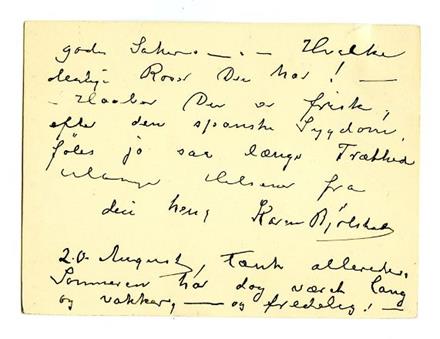 gode Saker — . — Hvilke
deilige Roser Du har! —
– Haaber Du er frisk,
efter den spanske Sygdom,
føles jo saa længe Træthed
Mange Hilsener fra
din heng Karen Bjølstad
20 August, tænk allerede.
Sommeren har dog været lang
og vakker, — og fredelig! —